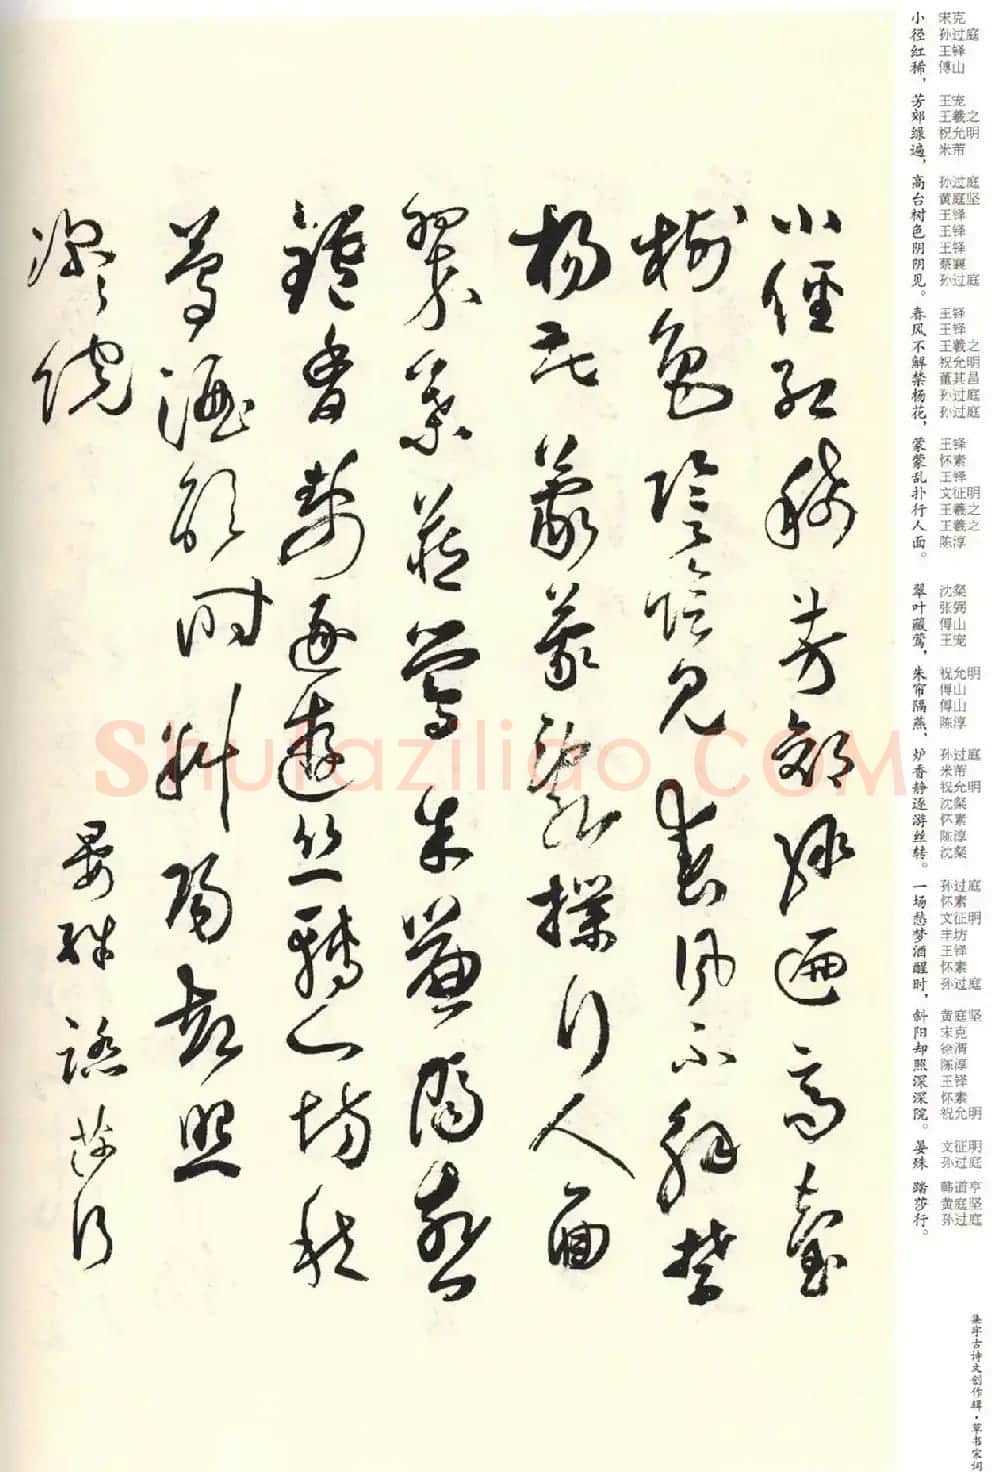 小 宋克
径 孙过庭
红 王铎
稀， 傅山
芳 王宠
郊 王羲之
绿 祝允明
遍， 米芾
高 孙过庭
台 黄庭坚
树 王铎
色 王铎
阴 王铎
阴 蔡襄
见。 孙过庭
春 王铎
风 王铎
不 王羲之
解 祝允明
禁 董其昌
杨 孙过庭
花， 孙过庭
蒙 王铎
蒙 怀素
乱 王铎
扑 文征明
行 王羲之
人 王羲之
面。 陈淳
翠 沈粲
叶 张弼
藏 傅山
莺， 王宠
朱 祝允明
帘 傅山
隔 傅山
燕、 陈淳
炉 孙过庭
香 米芾
静 祝允明
逐 沈粲
游 怀素
丝 陈淳
转。 沈粲
一 孙过庭
场 怀素
愁 文征明
梦 丰坊
酒 王铎
醒 怀素
时， 孙过庭
斜 黄庭坚
阳 宋克
却 徐渭
照 陈淳
深 王铎
深 怀素
院。 祝允明
晏 文征明
殊 孙过庭
踏 韩道亨
莎 黄庭坚
行。 孙过庭
集字古诗文创作辑·草书宋词
小徑紅稀芳郊綠遍高臺
樹色陰陰見春風不解禁
楊花蒙蒙亂撲行人面
翠葉藏鶯朱簾隔燕
鑪香靜逐遊絲轉一場愁
夢酒醒時斜陽却照
深深院
晏殊踏莎行
Shufaziliao.COM